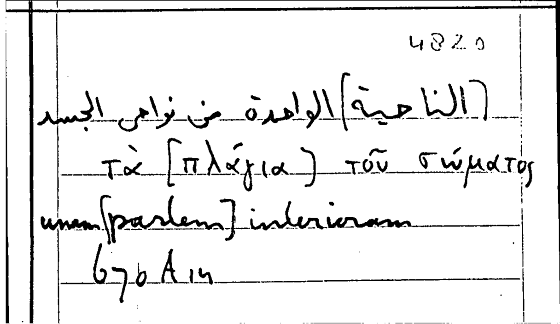 4820
[الناحية] الواحدة من نواحى الجسد
τὰ [πλάγια] τοῦ σώματος
unam [partem] interiorem
670 A 14